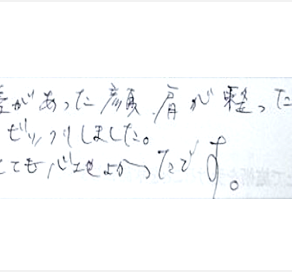 があった顔、肩が整った
ビックリしました。
とても心地よかったです。